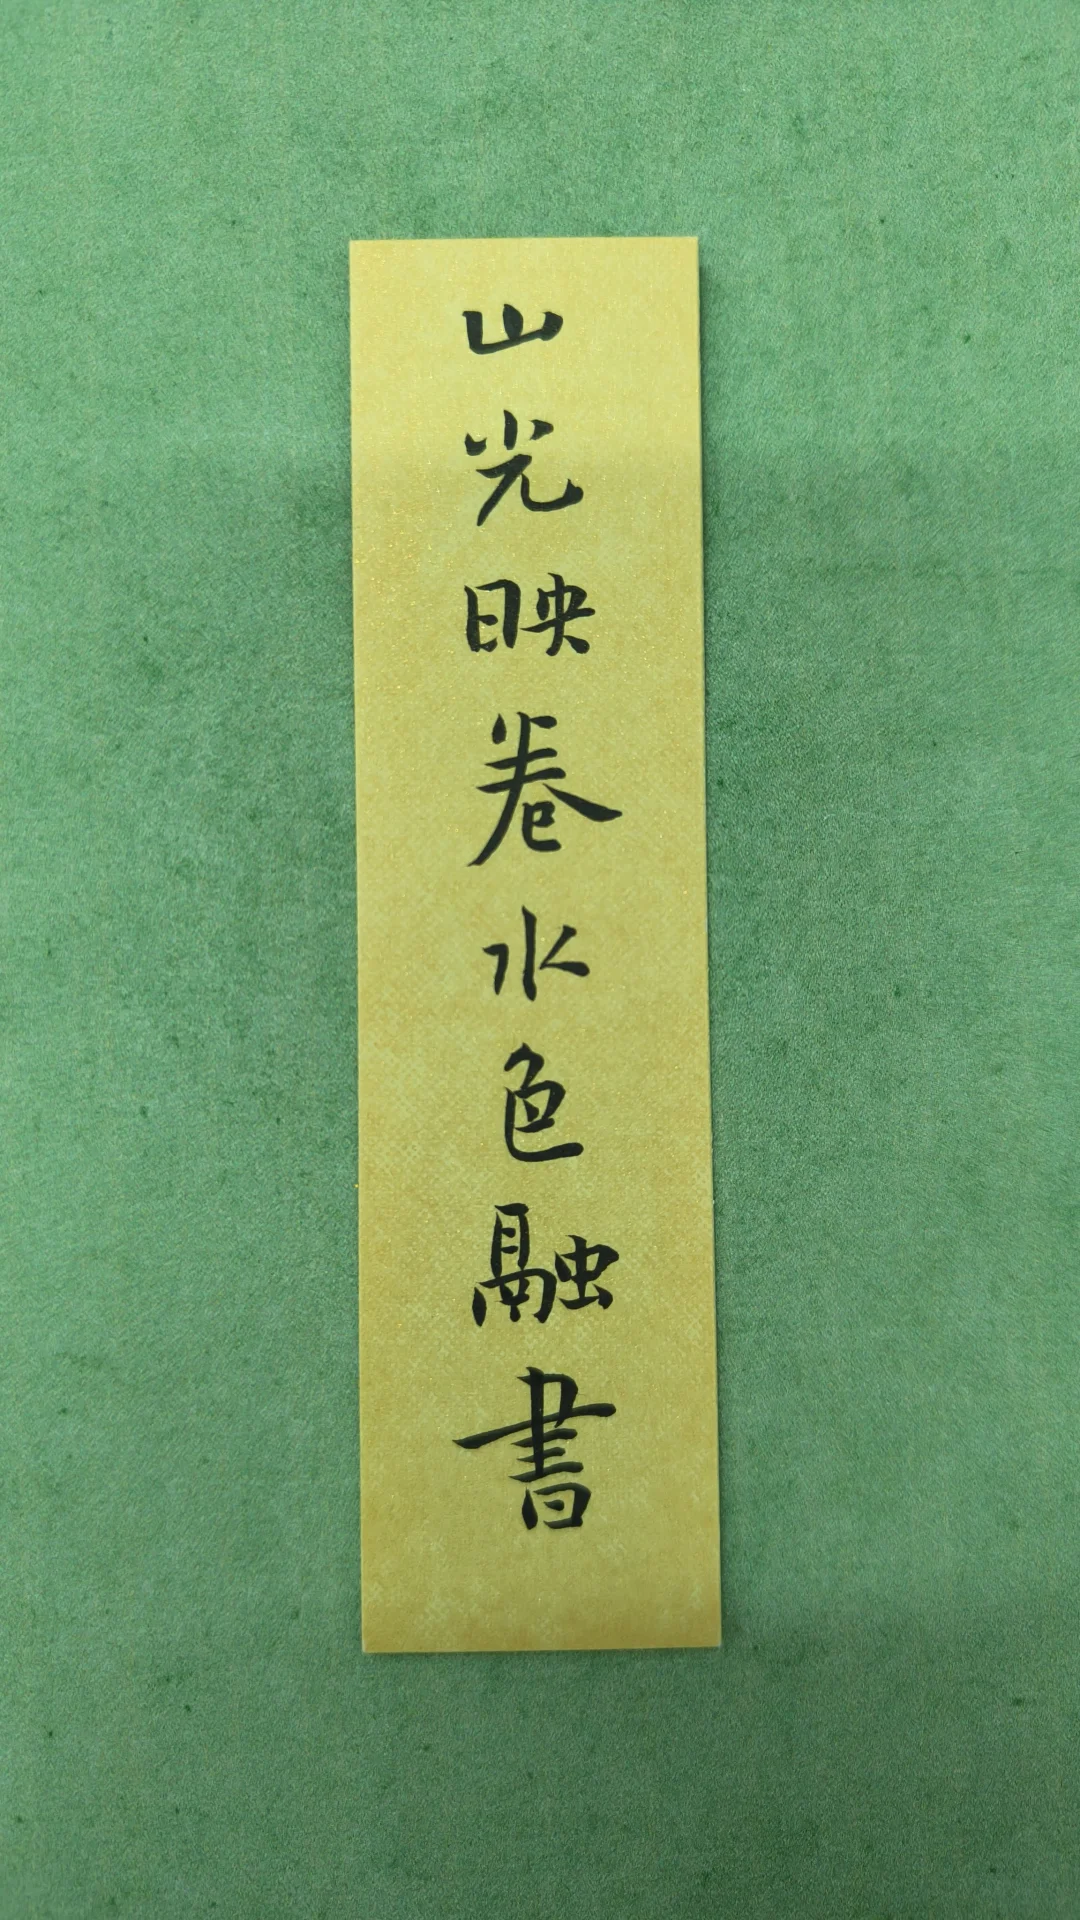 山光映卷水色融書